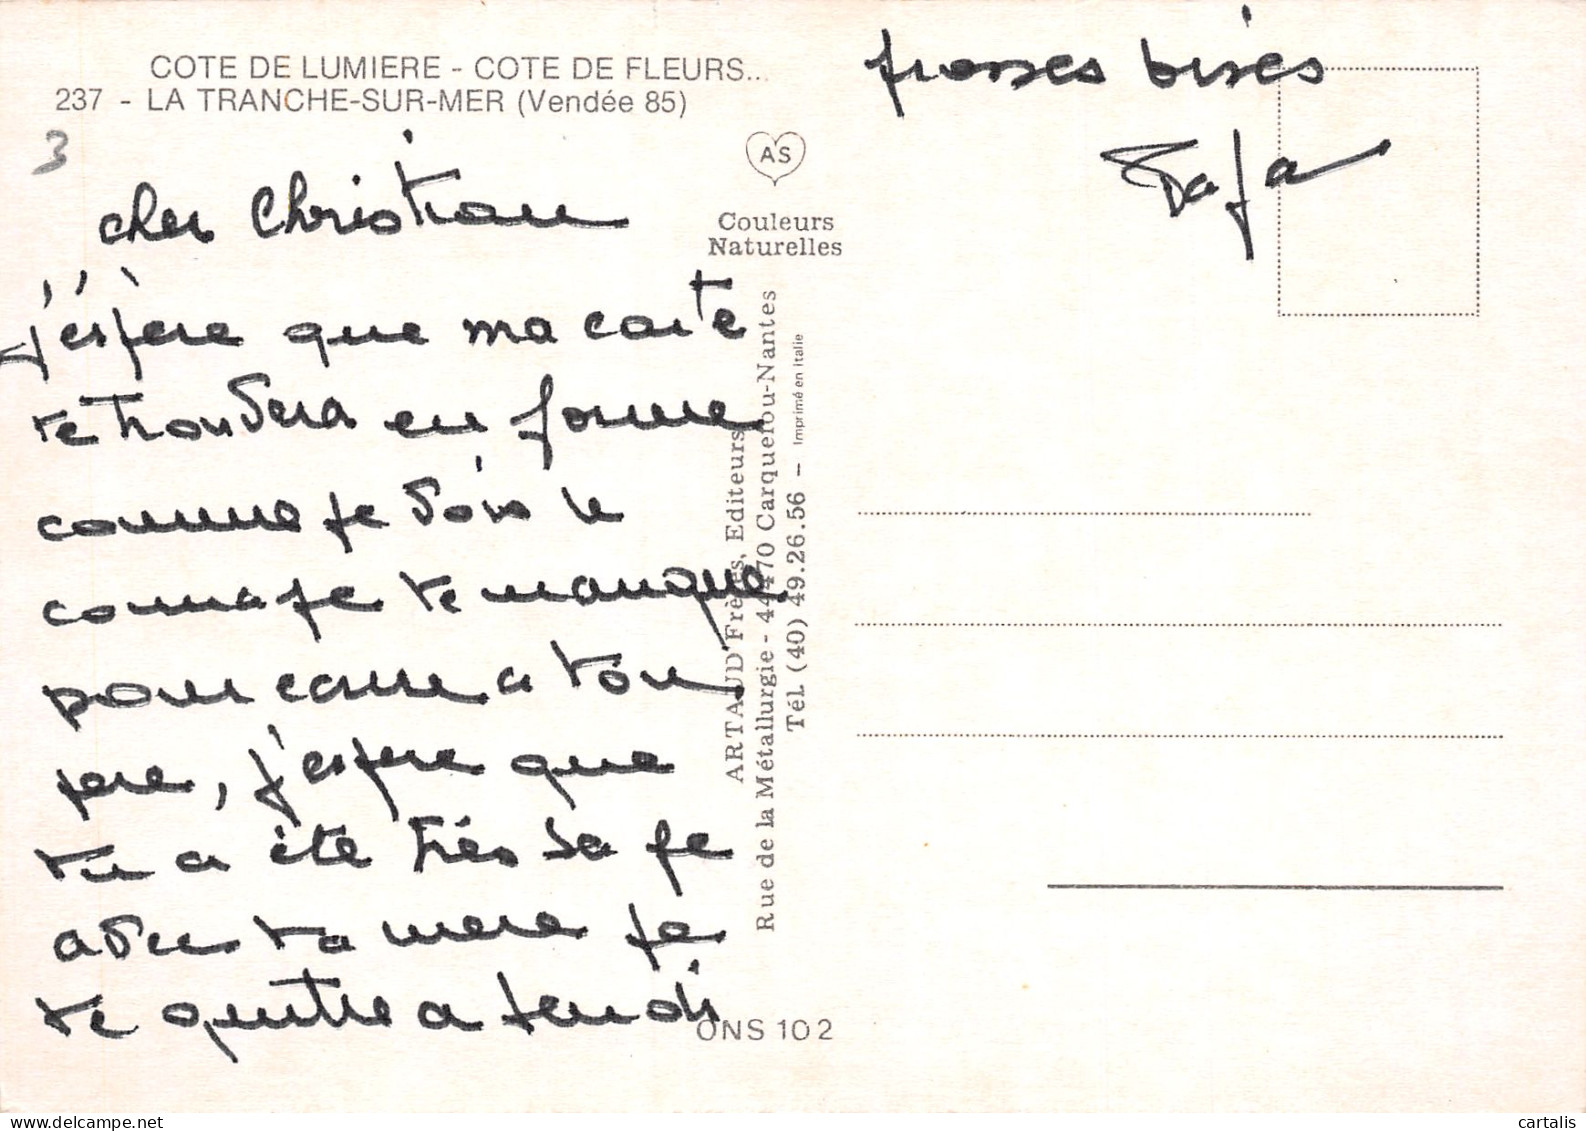 COTE DE LUMIERE - COTE DE FLEURS...
237 - LA TRANCHE-SUR-MER (Vendée 85)
3
cher Christian
j'éspère que ma carte
te trouvera en forme
comme je vois le
coma je te manque
pour come a ton
pere, j'espere que
tu a été très sa je
avec ta mere je
te quitte a jeudi
grosses bises
AS
Couleurs
Naturelles
ARTAUD Frères, Editeurs
Rue de la Métallurgie - 44470 Carquefou-Nantes
Tél. (40) 49.26.56 - Imprimé en Italie
ONS 102
cartalis
delcampe.net